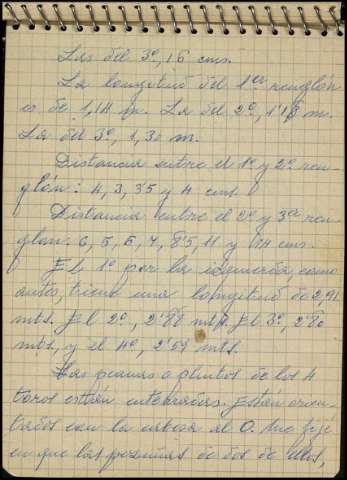 Las del 3º, 16 cms.
La longitud del 1er renglón
es de 1,14 m. La del 2º, 1'18 m.
La del 3º, 1,30 m.
Distancia entre el 1º y 2º ren-
glón: 4, 3, 3'5 y 4 cms.
Distancia entre el 2º y 3er ren-
glon: 6, 5, 6, 7, 8'5, 11 y 14 cms.
El 1º por la izquierda, como
antes, tiene una longitud de 2,91
mts. El 2º, 2'88 mts. El 3º, 2'80
mts, y el 4º, 2'59 mts.
Las peanas o plintos de los 4
toros están enterradas. Están orien-
tados con la cabeza al O. Me fijé
en que las pezuñas de dos de ellos,